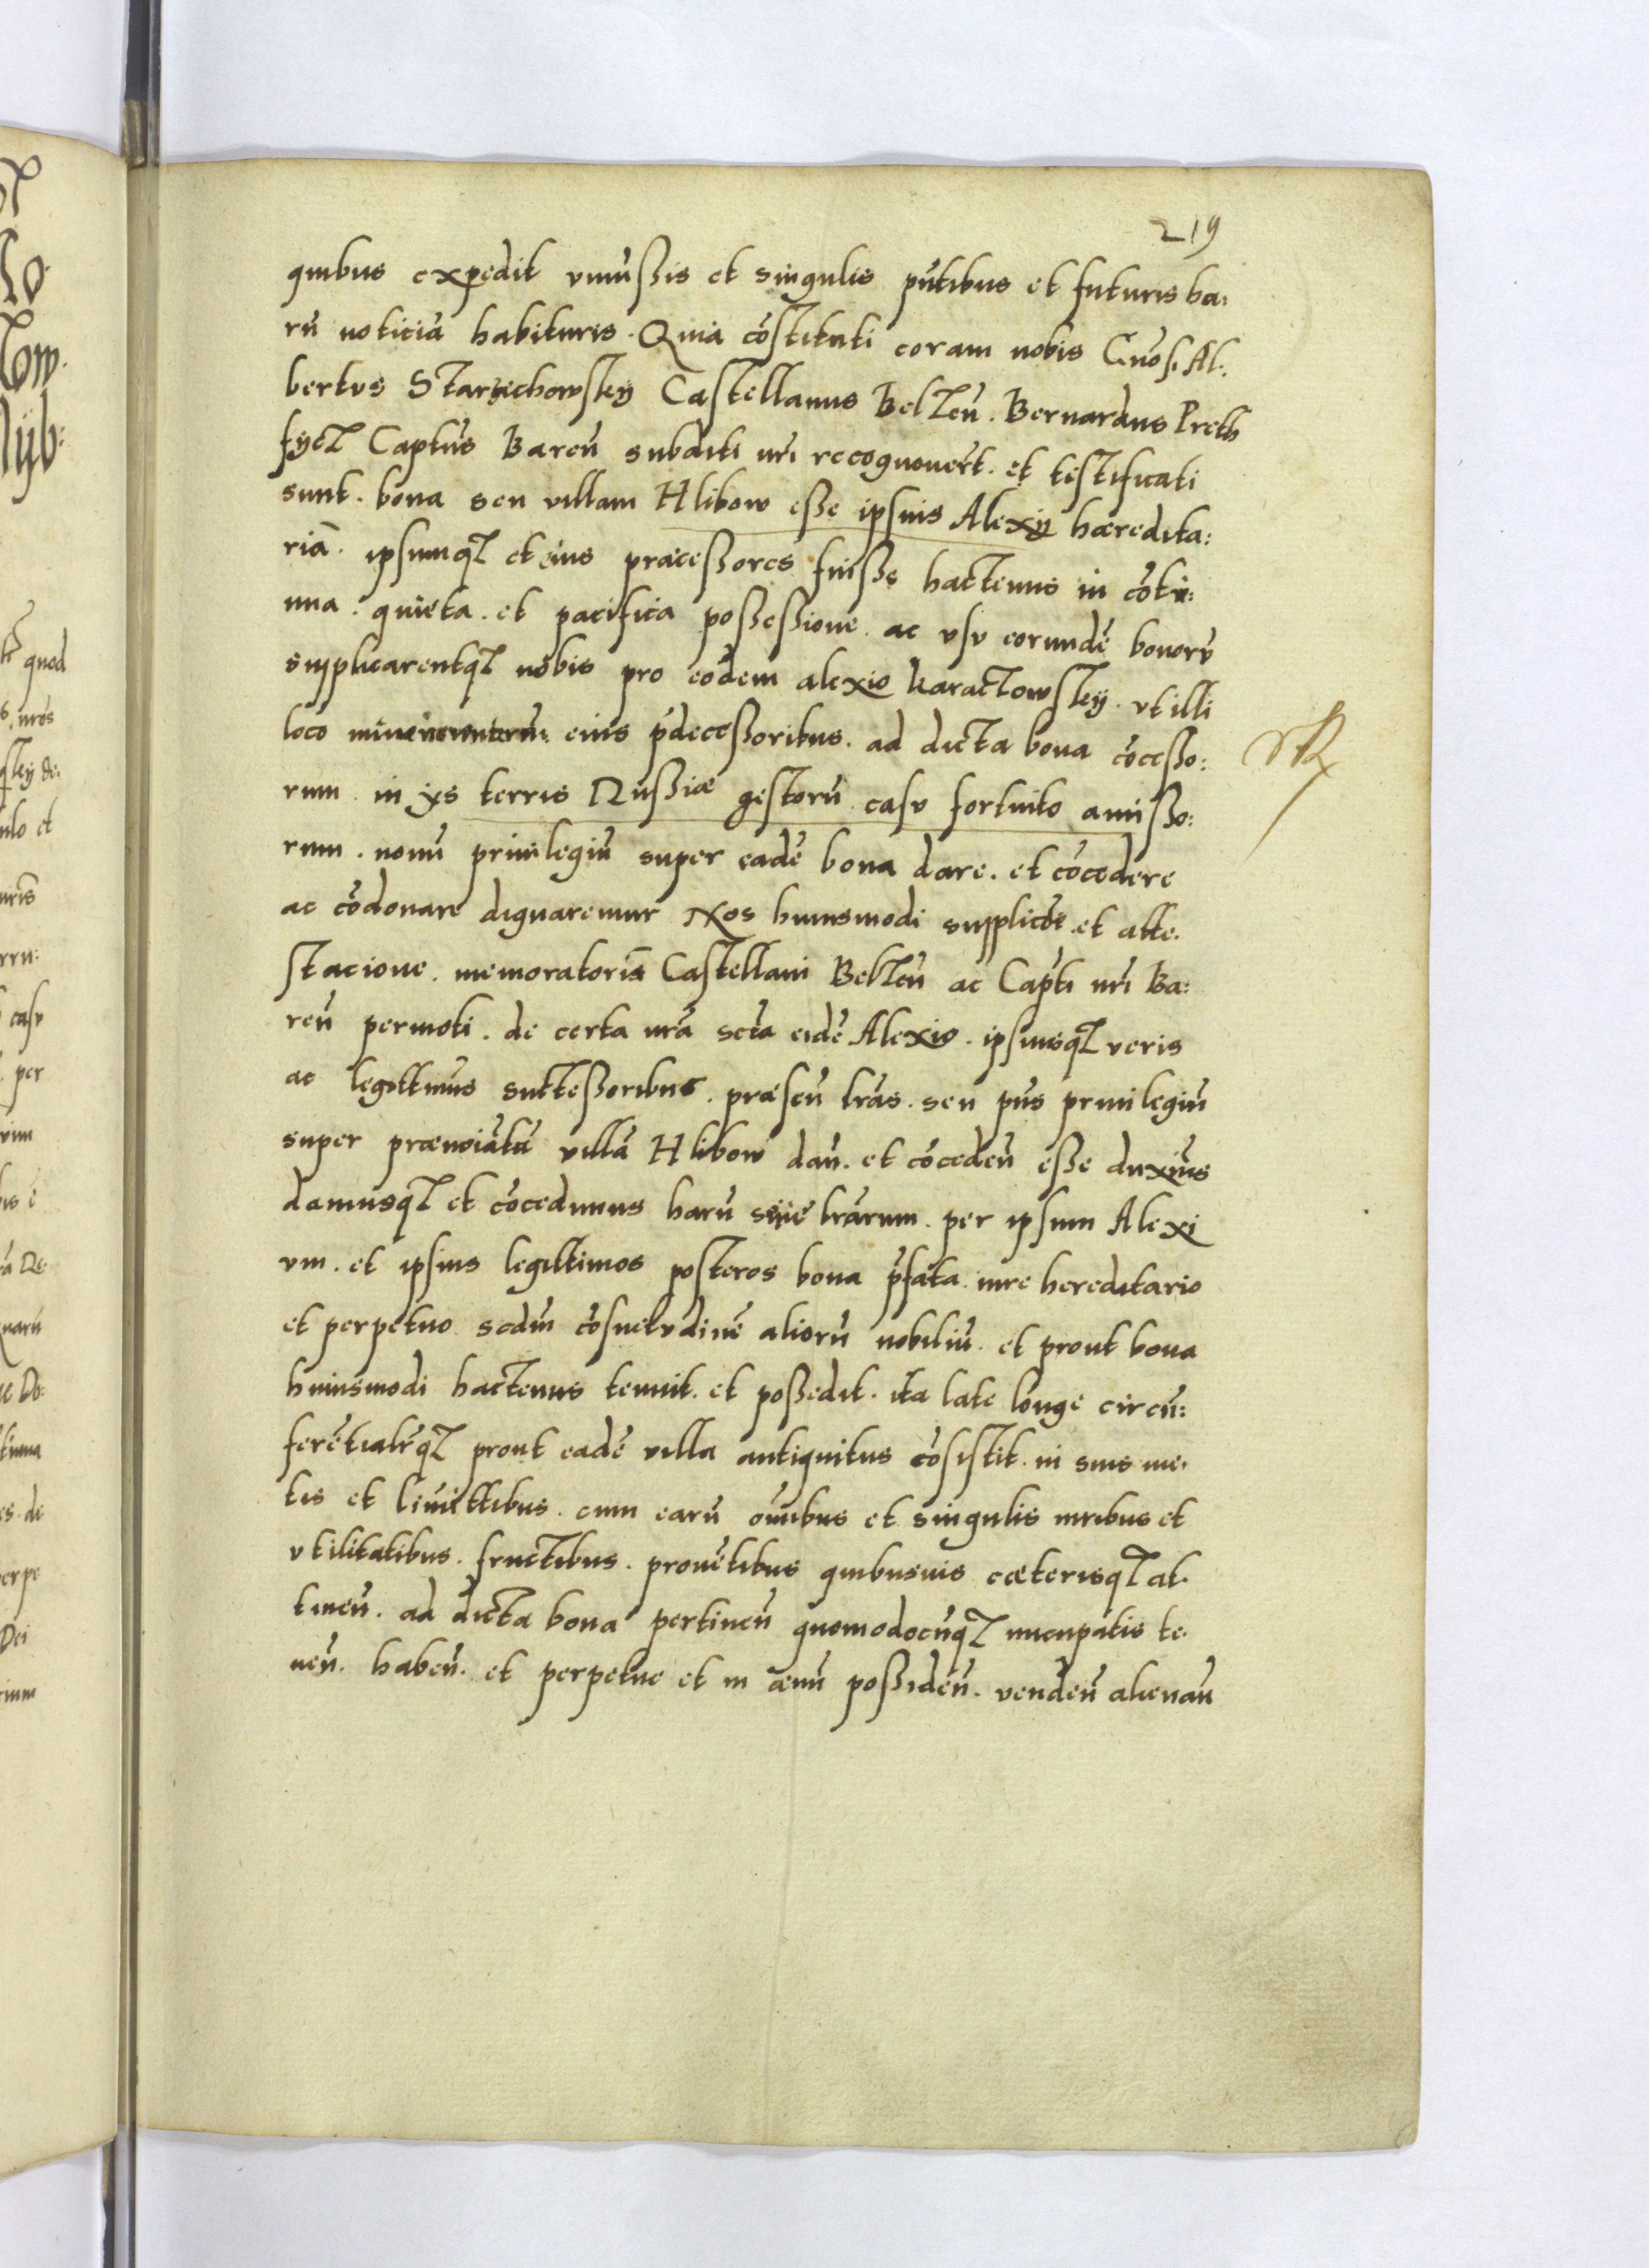 219
quibus expedit vniūssis et singulis pn̄tibus et futuris ha:
rū noticiā habituris. Quia cōstituti coram nobis Gn̄osi Al:
bertus Starzechowsky Castellanus Belzeñ. Bernardus Preth
fycz Captūs Bareñ subditi nr̄i recognouert. et testificati
sunt. bona seu villam Hlibow esse ipsius Alexy hæredita:
riā. ipsumqz et eius præcessores fuisse hactenus in cōti:
nua. quieta. et pacifica possessione. ac vsv eorundē bonorv̄
supplicarentqz nobis pro eodem alexio karaczowsky. vt illi
loco eius p̄decessoribus. ad dicta bona cōcesso:
rum. in ijs terris Russiæ gestorū casv fortuito amisso:
rum. nouū priuilegiū super eadē bona dare. et cōcedere
ac cōdonare dignaremur Nos huiusmodi supplicōe. et atte.
stacione. memoratorū Castellani Belzeñ ac Capti nr̄i Ba:
reñ permoti. de certa nr̄a scīa eidē Alexio. ipsiusqz veris
ac legittimis suctessoribus. præseñ lr̄as. seu pn̄s priuilegiū
super prænoiātā villā Hlibow dañ. et cōcedeñ esse duxim̄s
damusqz et cōcedimus harū serie lr̄arum. per ipsum Alexi
vm. et ipsius legittimos posteros bona p̄fata. iure hereditario
et perpetuo secdm̄ cōsuetvdinē aliorū nobiliū. et prout bona
huiusmodi hactenus tenuit. et possedit. ita late longe circū:
ferētialr̄qz prout eadē villa antiquitus cōsistit. in suis me.
tis et limittibus. cum earū om̄ibus et singulis iuribus et
vtilitatibus. fructibus. prouētibus quibusuis cæterisqz at.
tineñ. ad dicta bona pertineñ quomodocūqz nucupatis te.
neñ. habeñ. et perpetue et in æuū possideñ. vendeñ alienañ